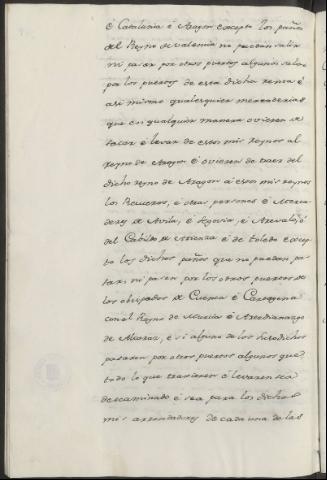 é Catalunia é Aragon excepto los paños
del Reyno de valencia no puedan salir
ni pasen por otros puertos algunos salvo
por los puertos de esta dicha renta é
asi mismo qualesquier mercaderias
que en qualquier manera ovieren de
sacar é levar de esos mis reynos al
reyno de Aragon é ovieren de traer del
dicho reyno de Aragon á esos mis reynos
los Requeros, é otras personas é Merca
deres de Avila, é Segovia, é Arevalo, é
del Cabildo de é de toledo excep
to los dichos paños que no puedan, pa
sar ni pasen por los otros puertos de
los obispados de Cuenca é Cartagena
con el Reyno de Murcia é Arcedianazgo
de Alcaraz, é si alguno de los susodichos
pasaren por otros puertos algunos que
todo lo que traxieren é levaren sea
descaminado é sea para los dichos
mis arrendadores de cada una de las